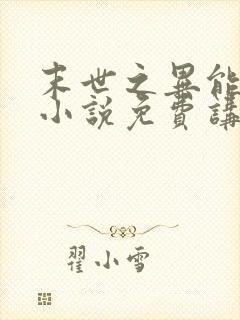 末世之異能
小說免費講
翟小雪